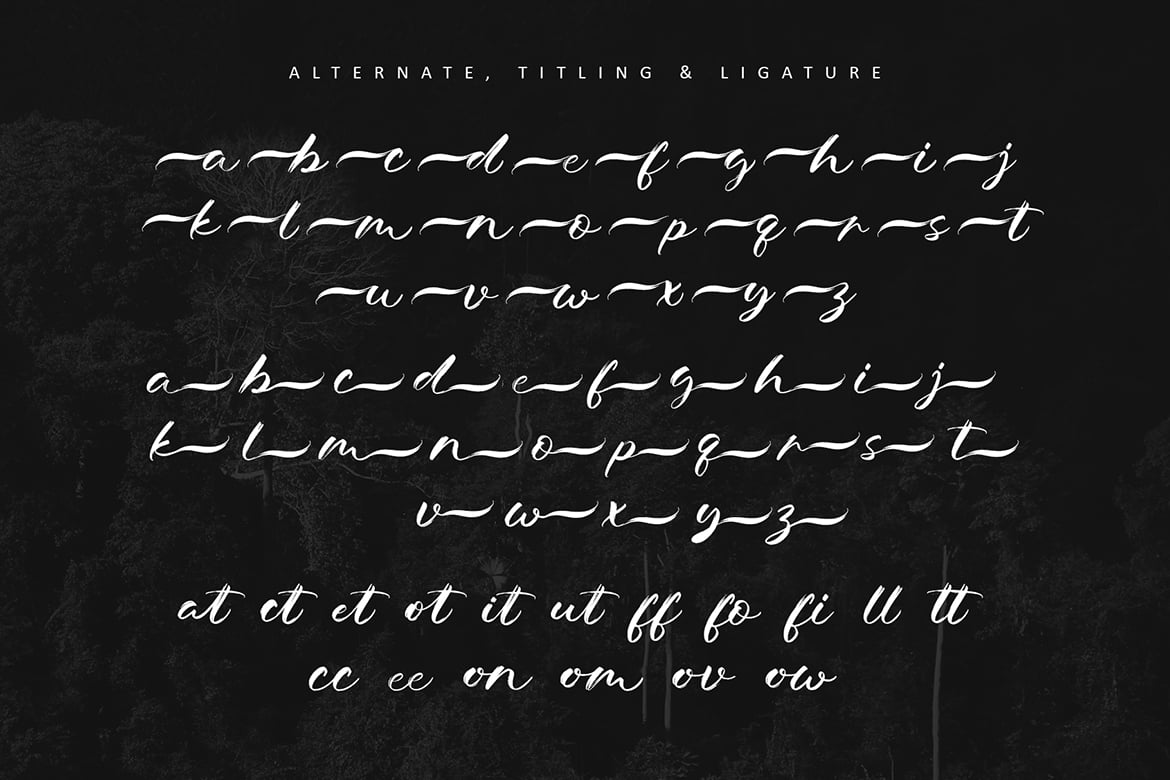 ALTERNATE, TITLING & LIGATURE
a b c d e f g h i j
k l m n o p q r s t
u v w x y z
a b c d e f g h i j
k l m n o p q r s t
v w x y z
at ct et ot it ut ff fo fi ll tt
cc ee on om ov ow